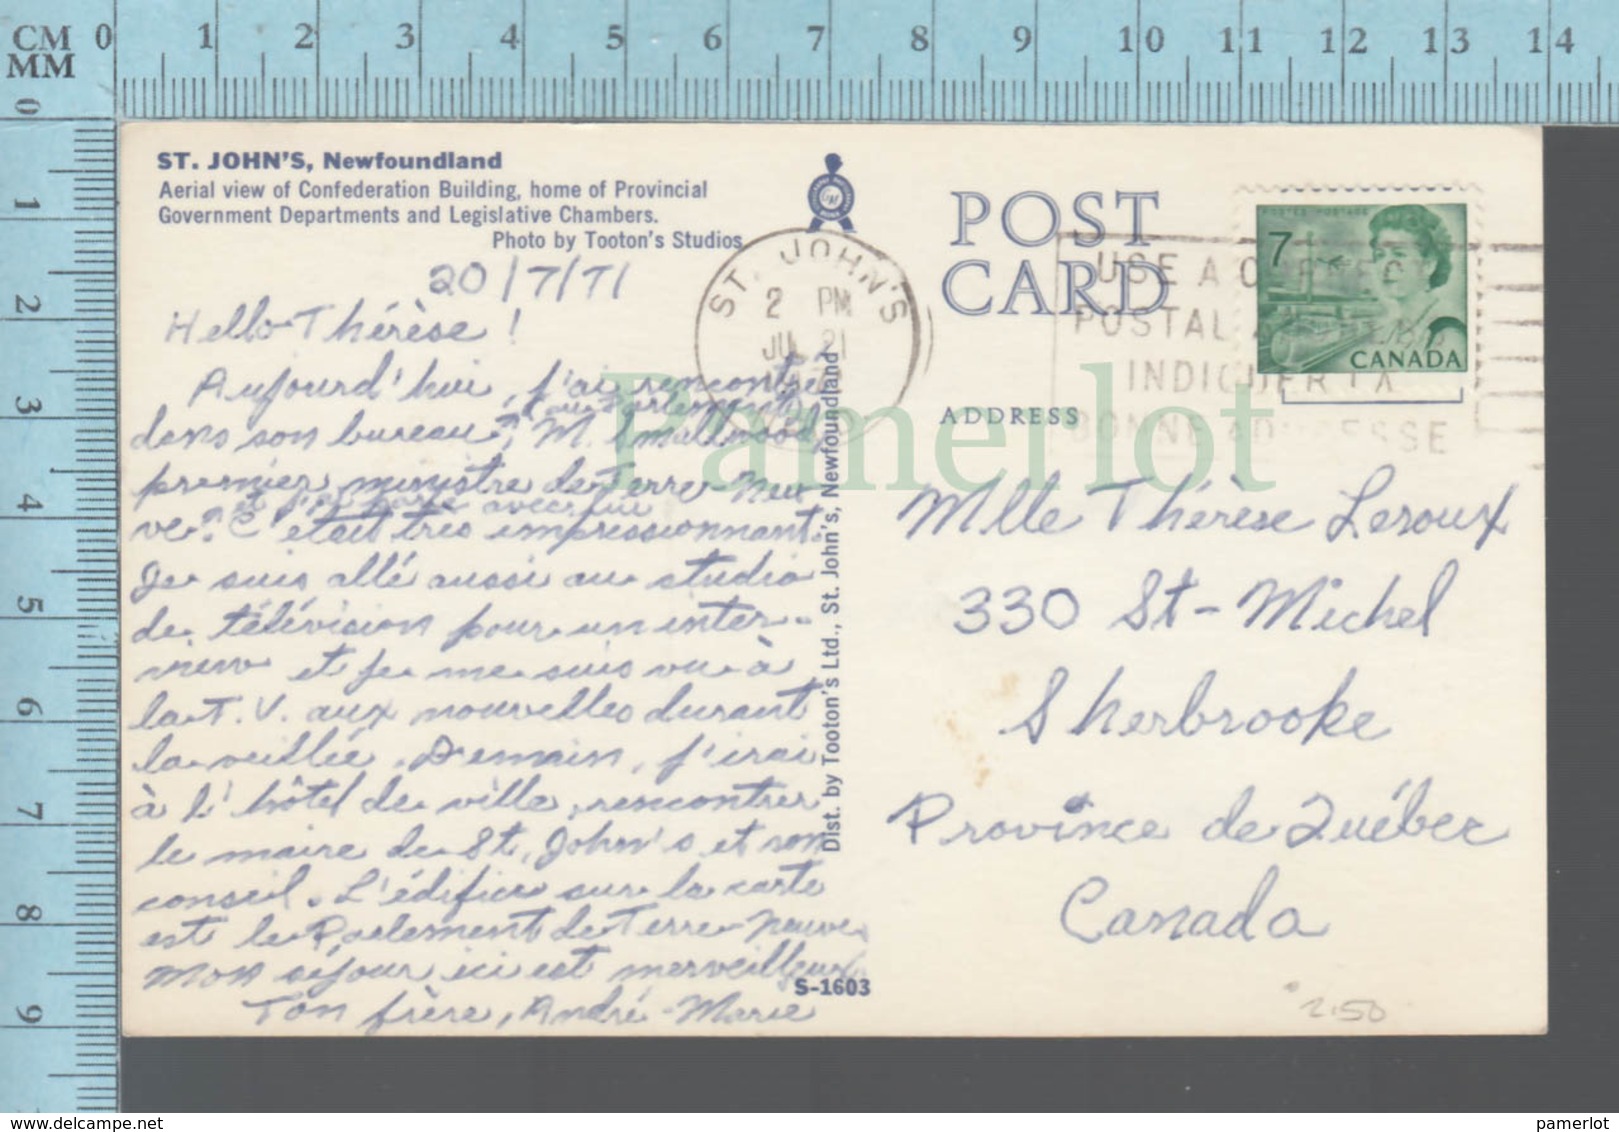 CM 0 1 2 3 4 5 6 7 8 9 10 11 12 13 14
MM
0 1 2 3 4 5 6 7 8 9
ST. JOHN'S, Newfoundland
Aerial view of Confederation Building, home of Provincial
Government Departments and Legislative Chambers.
Photo by Tooton's Studios
20/7/71
Hello Thérèse !
Aujourd'hui, j'ai rencontré
dans son bureau, au Parlement
M. Smallwood,
premier ministre de Terre-Neu
ve, et j'ai parlé avec lui
C'était très impressionnant.
Je suis allé aussi au studio
de télévision pour un inter-
view et je me suis vu à
la T.V. aux nouvelles durant
la veillée. Demain, j'irai
à l'hôtel de ville, rencontrer
le maire de St. John's et son
conseil. L'édifice sur la carte
est le Parlement de Terre-Neuve.
Mon séjour ici est merveilleux.
Ton frère, André-Marie
S-1603
Dist. by Tooton's Ltd., St. John's, Newfoundland
ST. JOHN'S
2 PM
JUL 21
POST
CARD
ADDRESS
USE A CORRECT
POSTAL ADDRESS
INDIQUER LA
BONNE ADRESSE
POSTES POSTAGE
7
CANADA
Mlle Thérèse Leroux
330 St-Michel
Sherbrooke
Province de Québec
Canada
2.50
Pamerlot
www.delcampe.net
pamerlot